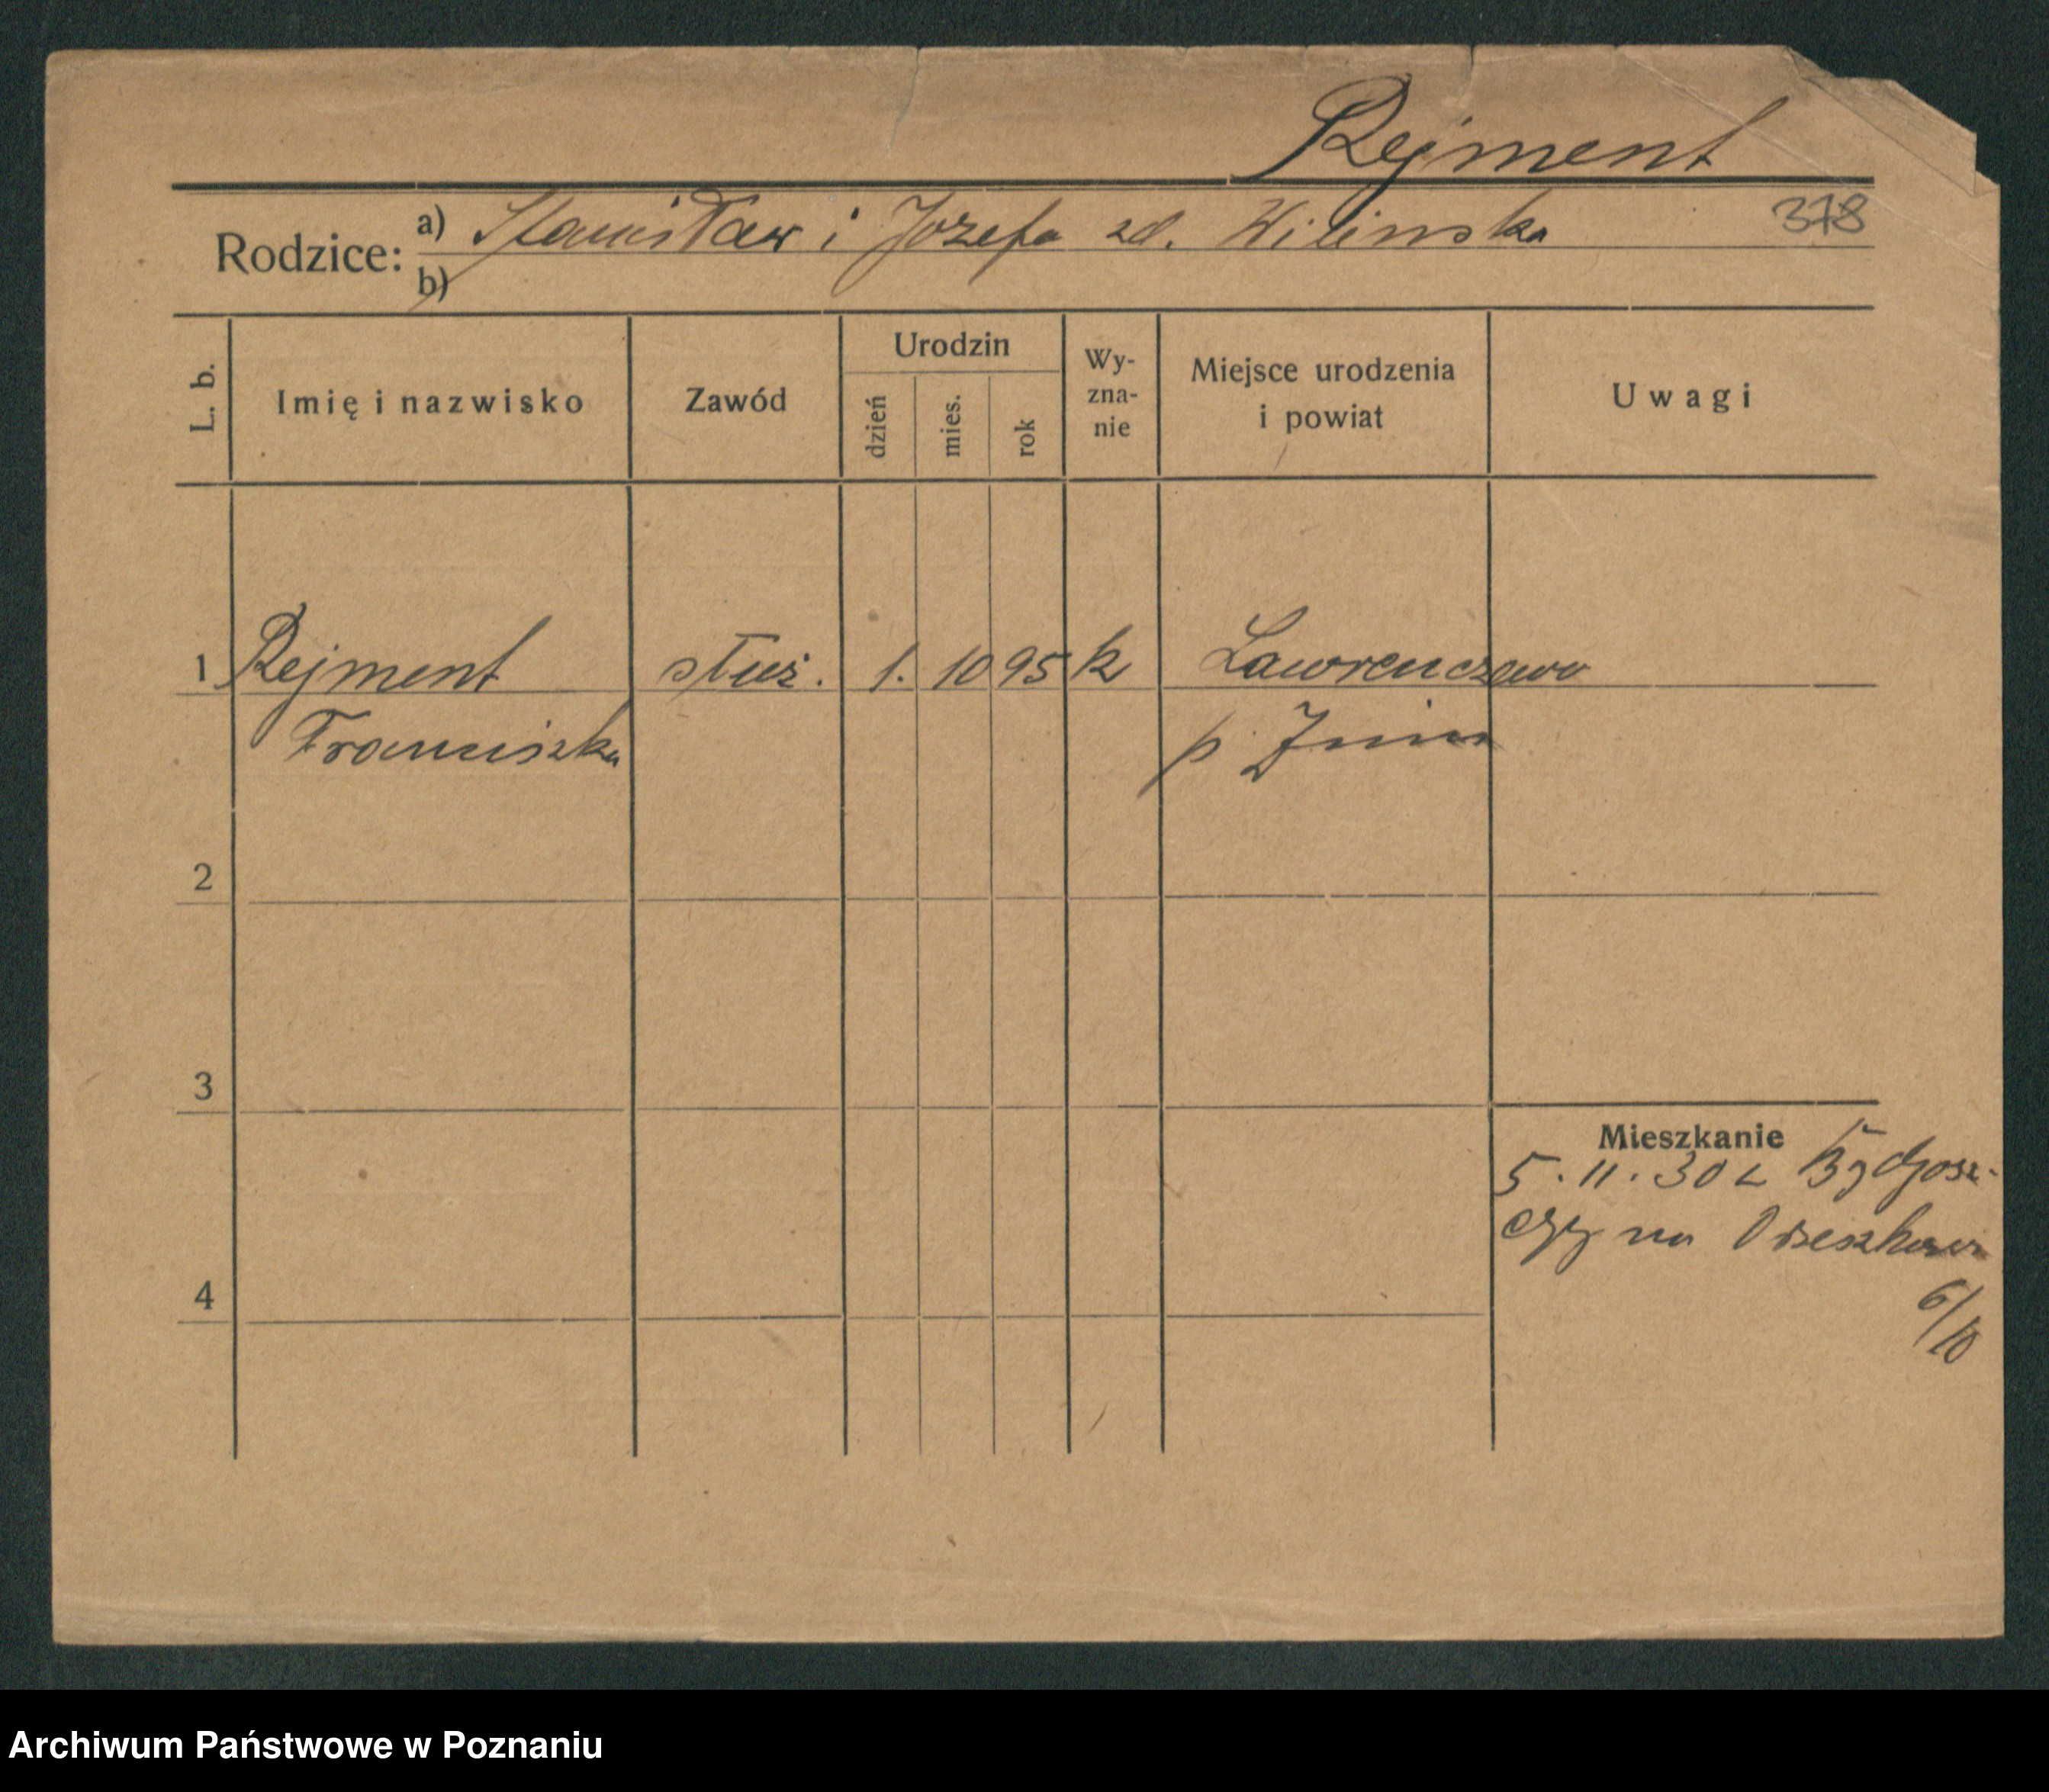 Rejment
378
Rodzice: a) Stanisław i Jozefa zd. Wilinska
b)
L. b.
Imię i nazwisko
Zawód
Urodzin
dzień
mies.
rok
Wy-
zna-
nie
Miejsce urodzenia
i powiat
Uwagi
1 Rejment służ. 1. 10 95 k Lawrenczewo
Franciszka p. Znin
2
3
4
Mieszkanie
5.11.30 z Bydgosz-
czy na
6/10
Archiwum Państwowe w Poznaniu